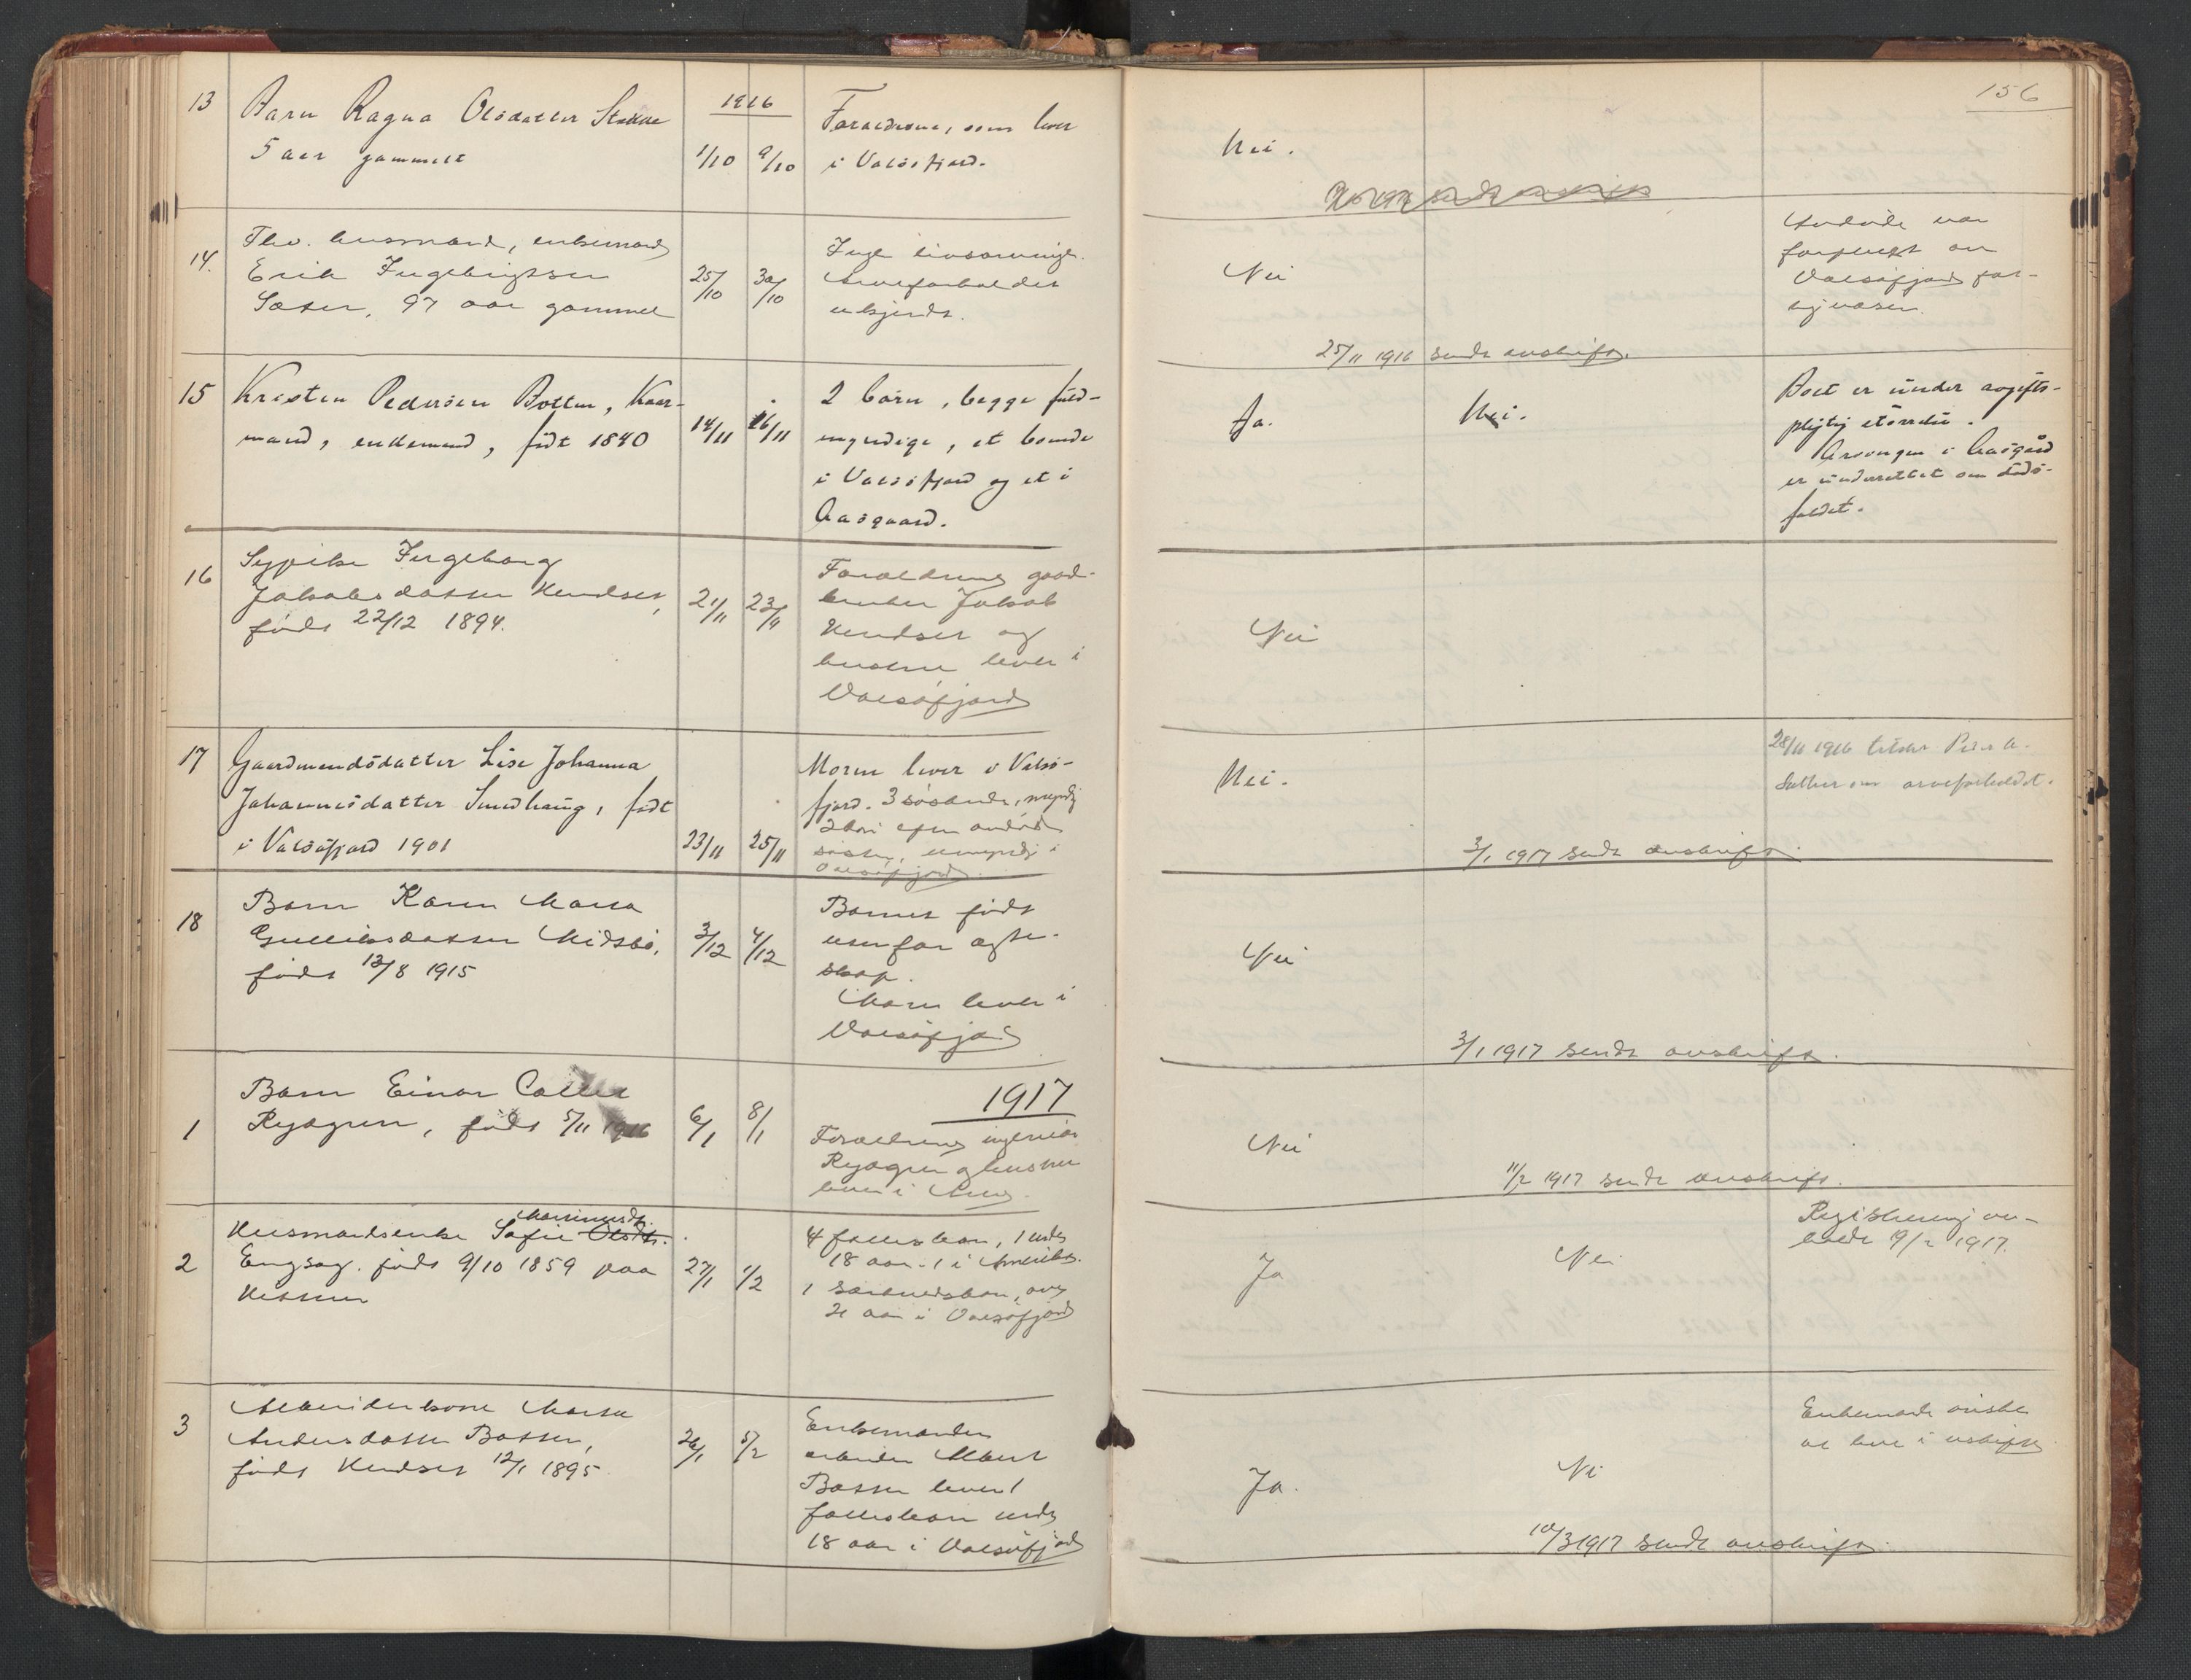 156
1916
13
Barn Ragna Olsdatter Stokke
5 aar gammelt
1/10 9/10
Foraeldrene, som lever
i Valsøfjord.
Nei.
14.
Fhv. husmand, enkemand
Erik Ingebrigtsen
Sæter, 97 aar gammel
25/10 30/10
Ingen livsarvinger.
Arveforholdet
ukjendt.
Nei
Avdøde var
forpleiet av
Valsøfjord for-
sigvæsen.
25/11 1916 sendt avskrift.
15
Kristen Pedersen Botten, Kaar-
mand, enkemand, født 1840
14/11 16/11
2 børn, begge fuld-
myndige, et boende
i Valsøfjord og et i
Aasgaard.
Ja.
Nei.
Boet er under avgifts-
pligtig størrelse.
Arvingen i Aasgård
er underrettet om døds-
faldet.
16
Sypike Ingeborg
Jakobsdatter Hendset,
født 22/12 1894.
21/11 23/11
Foraeldrene gaard-
bruker Jakob
Hendset og
hustru lever i
Valsøfjord
Nei
17
Gaardmandsdatter Lise Johanna
Johannesdatter Sundhaug, født
i Valsøfjord 1901
23/11 25/11
Moren lever i Valsø-
fjord. 3 søskende, myndig
2 barn efter avdød
søster, umyndig i
Valsøfjord.
Nei.
28/11 1916 Peder A.
om arveforholdet.
3/1 1917 sendt avskrift.
18
Barn Karen Marta
Gulliksdatter Midsbø,
født 13/8 1915
3/12 4/12
Barnet født
utenfor egte-
skap.
Moren lever i
Valsøfjord
Nei
3/1 1917 sendt avskrift.
1917
1
Barn Einar Collet
Rydgren, født 5/11 1916
6/1 8/1
Foraeldrene ingeniør
Rydgren og hustru
lever i
Nei
11/2 1917 sendt avskrift.
2
Husmandsenke Sofie Olsdtr.
Engsag. født 9/10 1859 paa
27/1 1/2
4 fællesbarn, 1 under
18 aar - 1 i Amerika.
1 særkuldsbarn, over
21 aar i Valsøfjord
Ja
Nei
Registrering av-
holdt 9/2 1917.
3
Arbeiderkone Marta
Andersdatter Botten,
født Hendset 12/1 1895
26/1 5/2
Enkemanden
arbeider Albert
Botten lever 1
fællesbarn under
18 aar i Valsøfjord
Ja.
Nei
Enkemand ønsker
at leve i uskifte
10/3 1917 sendt avskrift.